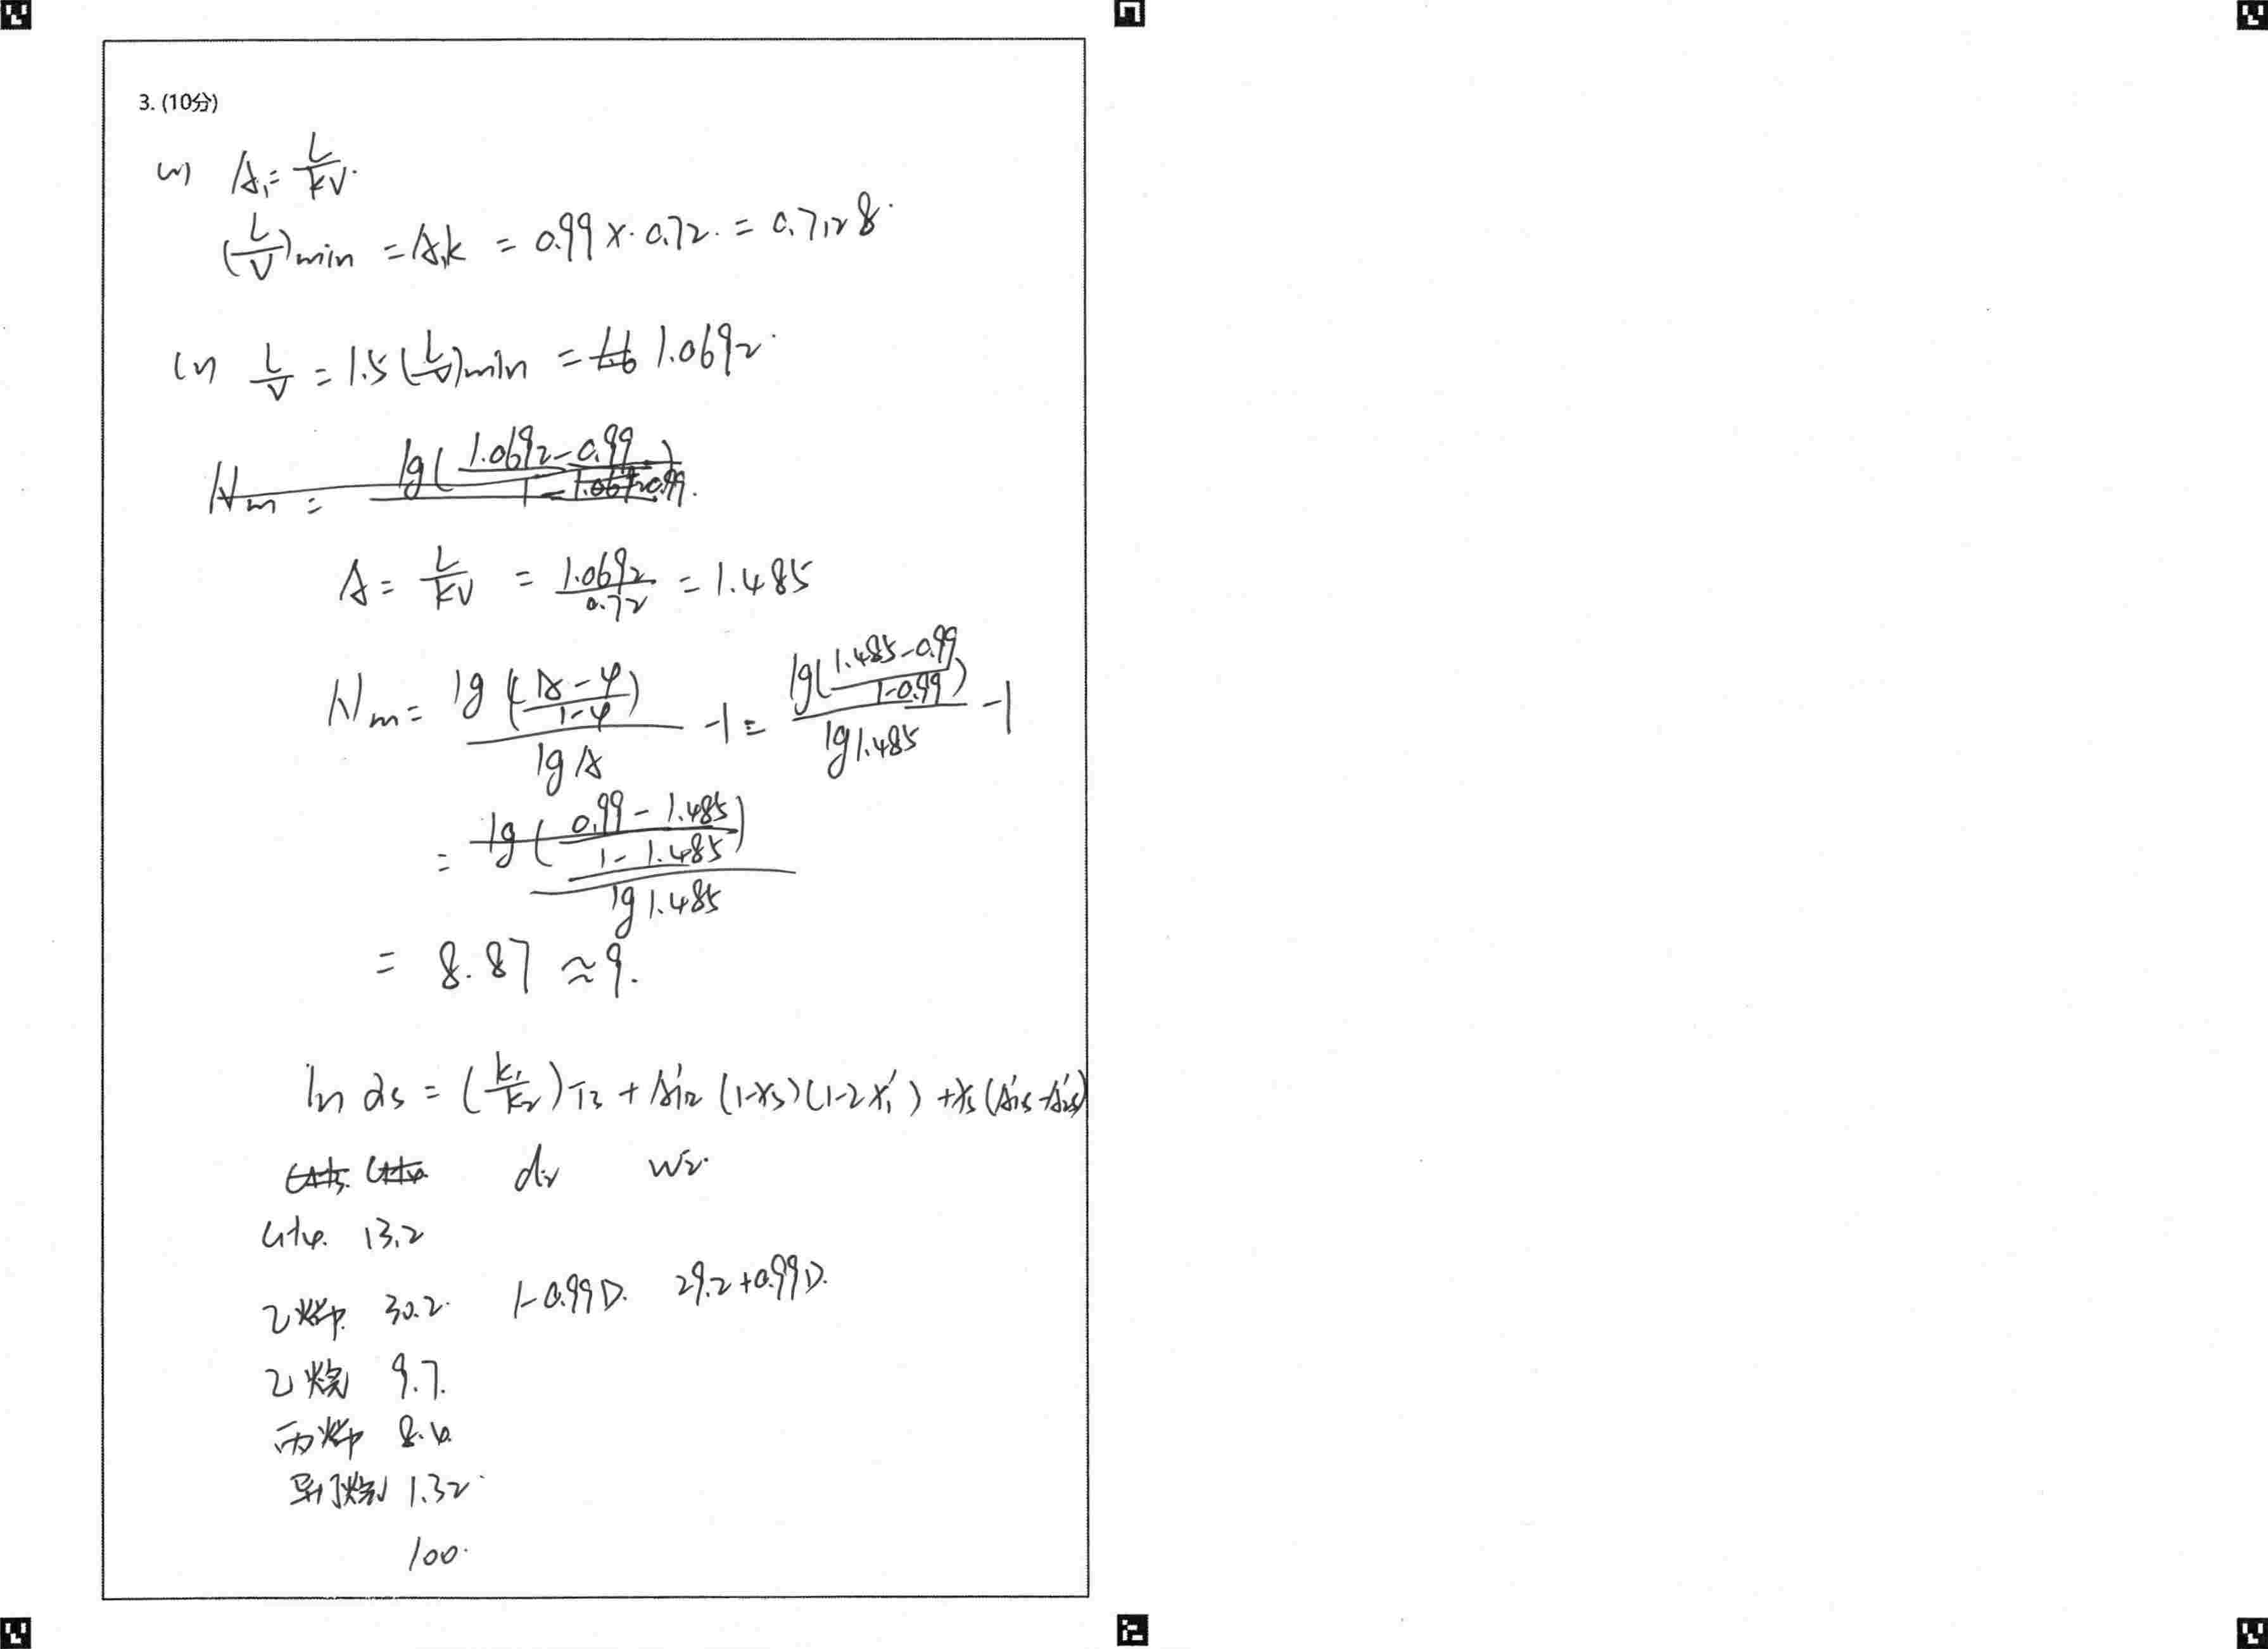 3. (10分)
(1) A₁ = L/KV.
(L/V)min = A₁k = 0.99 × 0.72 = 0.7128.
(2) L/V = 1.5 (L/V)min = 1.0692.
Nm = lg( (1.0692-0.99) / (1-1.0692-0.99) )
A = L/KV = 1.0692/0.72 = 1.485
Nm = lg((A-φ)/(1-φ)) / lg A -1 = lg((1.485-0.99)/(1-0.99)) / lg1.485 -1
= lg((0.99-1.485)/(1-1.485)) / lg1.485
= 8.87 ≈ 9.
ln αs = (k₁/k₂)T₃ + A'₁₂ (1-xs)(1-2x₁') + xs(A'₁s-A'₂s)
di wi.
CH4. 13.2
乙烯. 30.2. 1-0.99D. 29.2+0.99D.
乙烷 9.7.
丙烯 8.4.
异丁烷 1.32.
100.